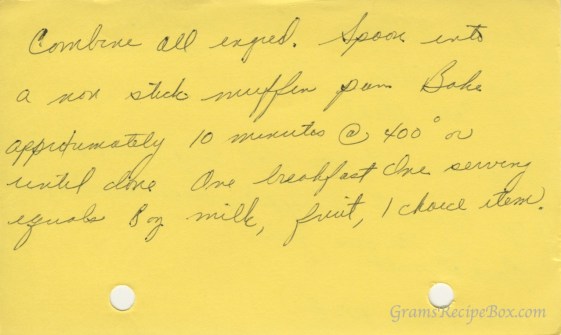 Combine all ingred. Spoon into
a non stick muffin pan Bake
approximately 10 minutes @ 400° or
until done One breakfast One serving
equals 8 oz milk, fruit, 1 choice item.
GramsRecipeBox.com